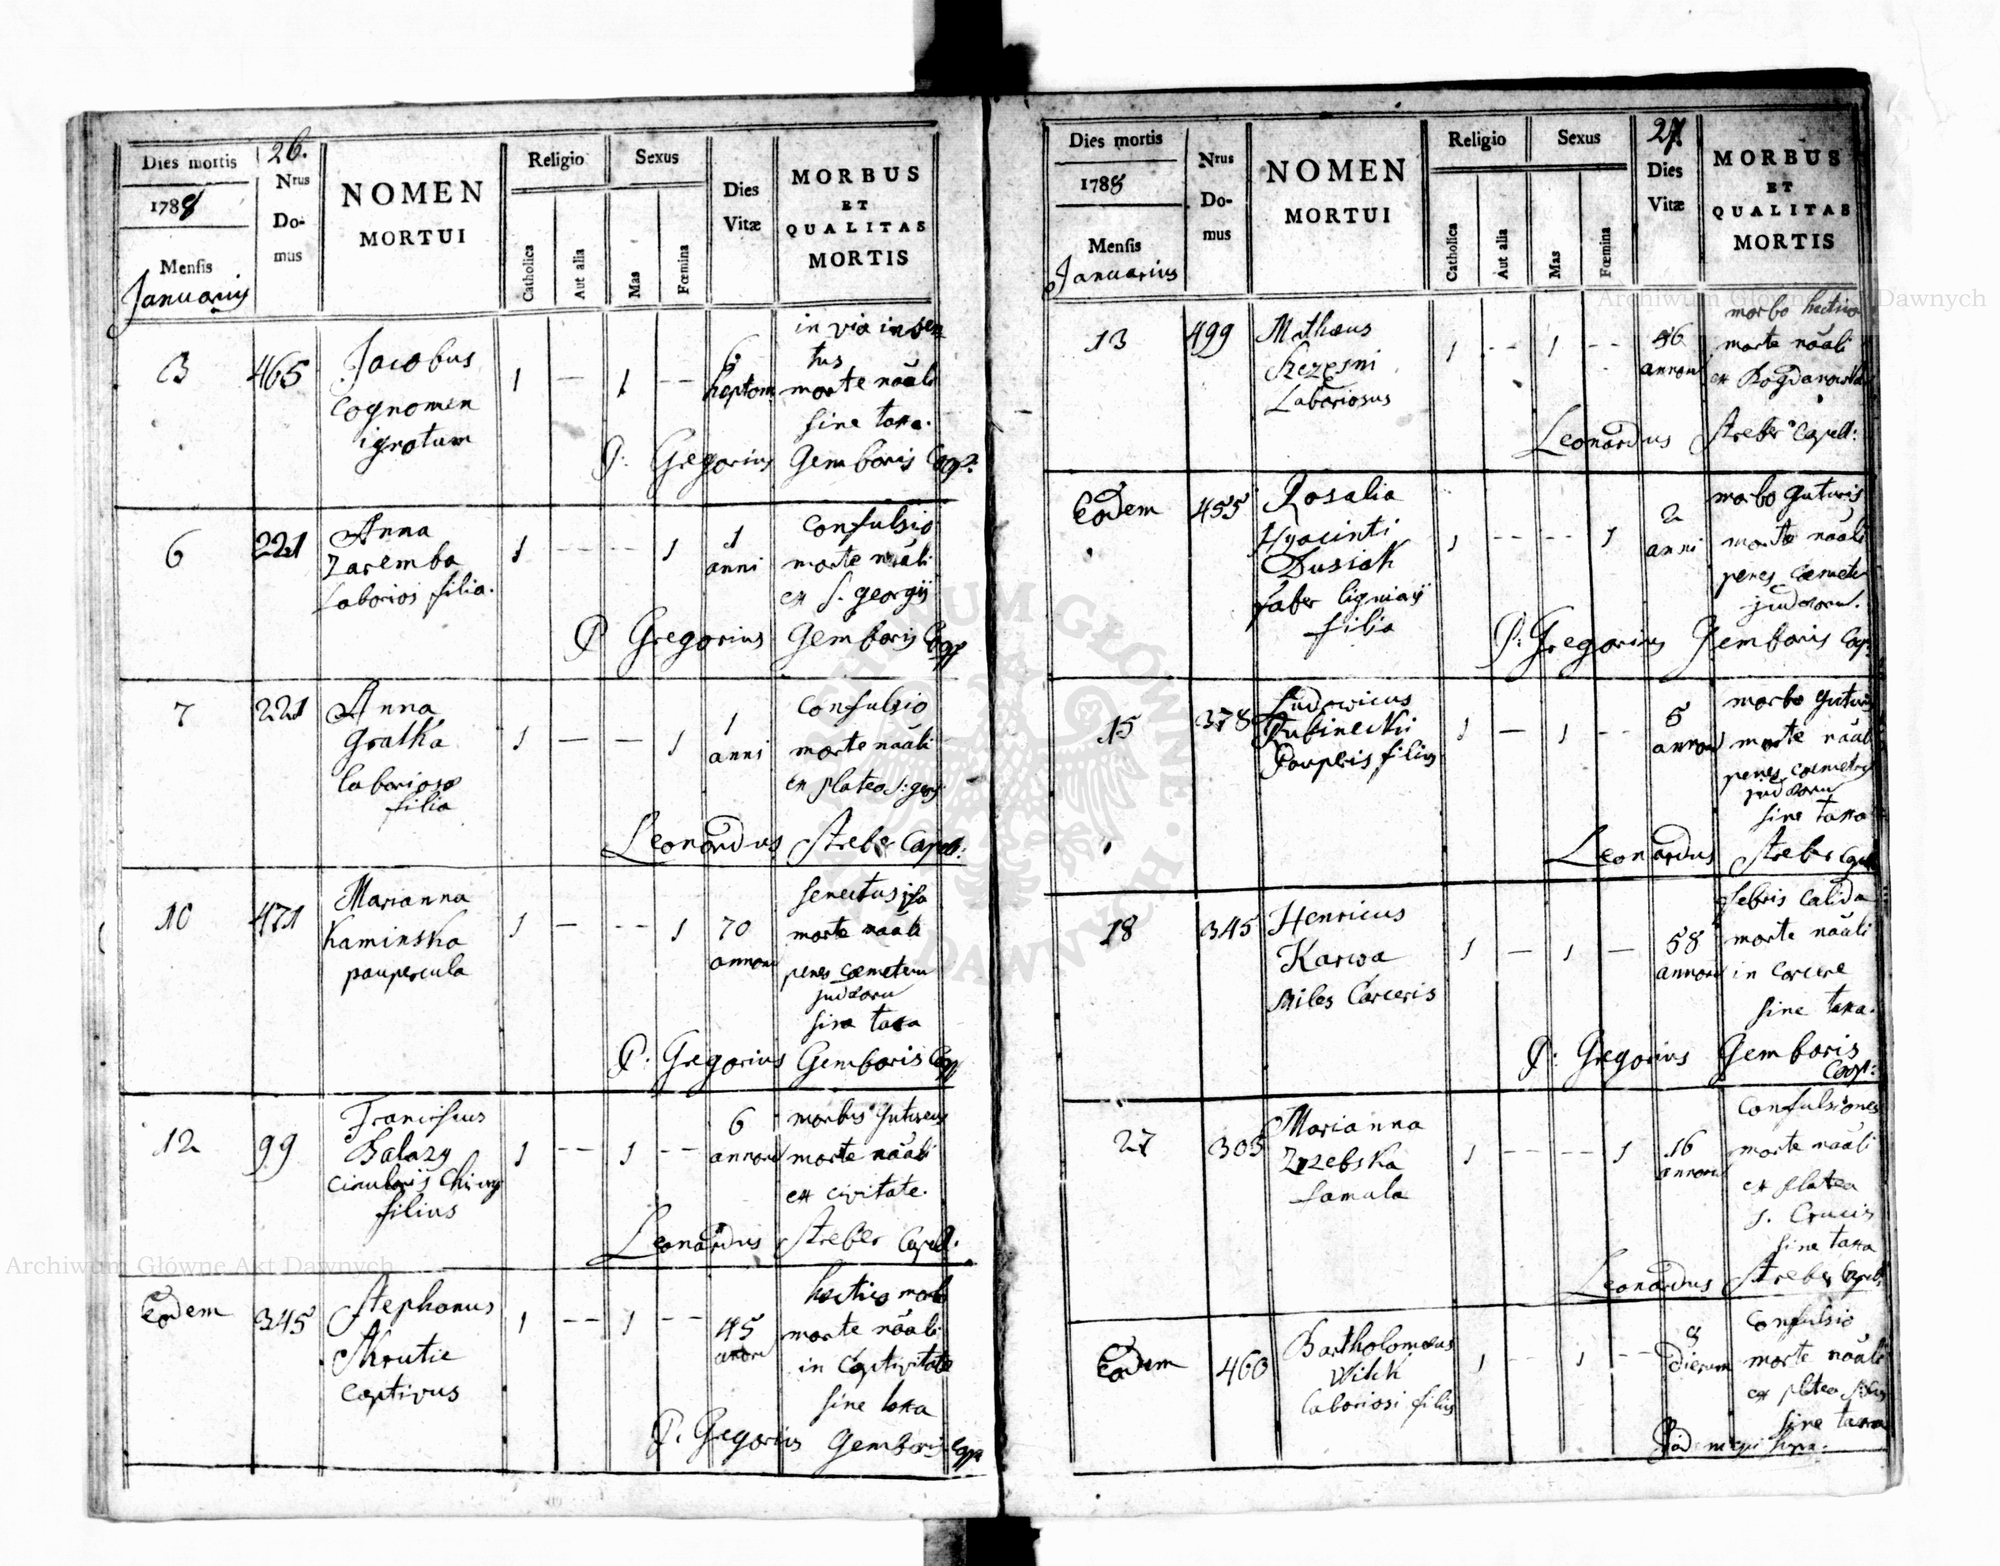 26.
Dies mortis
1788
Mensis
Januarius
Nrus
Do-
mus
NOMEN
MORTUI
Religio
Catholica
Aut alia
Sexus
Mas
Fœmina
Dies
Vitæ
MORBUS
ET
QUALITAS
MORTIS
3 465
Jacobus
Cognomen
ignotum
1 — 1 --
6
septom
in via inven
tus
morte nãali
sine taxa.
P: Gregorius Gemboris Coop:
6 221
Anna
Zaremba
Laborios filia.
1 -- -- 1
1
anni
Confulsio
morte nãali
ex S. georgij
P Gregorius Gemboris Coop
7 221
Anna
Gratka
laboriosæ
filia
1 — — 1
1
anni
Confulsio
morte nãali
ex platea S: georg
Leonardus Streber Capell:
10 471
Marianna
Kaminska
paupercula
1 — -- 1
70
annoru
senectus
morte nãali
penes cœmeteru
judæoru
sine taxa
P: Gregorius Gemboris Coop
12 99
Franciscus
Balazy
filius
1 -- 1 --
6
annoru
morbus gutureus
morte nãali
ex civitate.
Leonardus Streber Capell.
Eodem 345
Stephanus
Captivus
1 -- 1 --
45
annoru
hectico morbo
morte nãali
in Captivitate
sine taxa
P. Gregorius Gemboris Coop
27.
Dies mortis
1788
Mensis
Januarius
Nrus
Do-
mus
NOMEN
MORTUI
Religio
Catholica
Aut alia
Sexus
Mas
Fœmina
Dies
Vitæ
MORBUS
ET
QUALITAS
MORTIS
13 499
Mathæus
Szczesni
Laboriosus
1 -- 1 --
annoru
morbo hectico
morte nãali
ex Bogdanowka
Leonardus Streber Capell:
Eodem 455
Rosalia
Hyacinti
Dusiak
faber ligniarij
filia
1 -- -- 1
2
anni
morbo guturis
morte nãali
penes cœmeter
judæoru.
P: Gregorius Gemboris Coop:
15 378
Ludowicus
Rubinecki
Pauperis filius
1 — 1 --
5
annoru
morbo guturis
morte nãali
penes cœmetery
judæoru
sine taxa
Leonardus Streber Capell
18 345
Henricus
Karwa
Miles Carceris
1 — 1 —
58
annoru
febris calida
morte nãali
in carcere
sine taxa.
P: Gregorius Gemboris
Coop:
27 303
Marianna
Zrzebska
famula
1 -- -- 1
16
annoru
Confulsiones
morte nãali
ex platea
S. Crucis
sine taxa
Leonardus Streber Capell:
Eodem 460
Bartholomæus
Wilk
Laboriosi filius
1 - 1 --
8
dierum
Confulsio
morte nãali
ex platea
sine taxa
Archiwum Główne Akt Dawnych
Archiwum Główne Akt Dawnych
ARCHIWUM GŁÓWNE AKT DAWNYCH